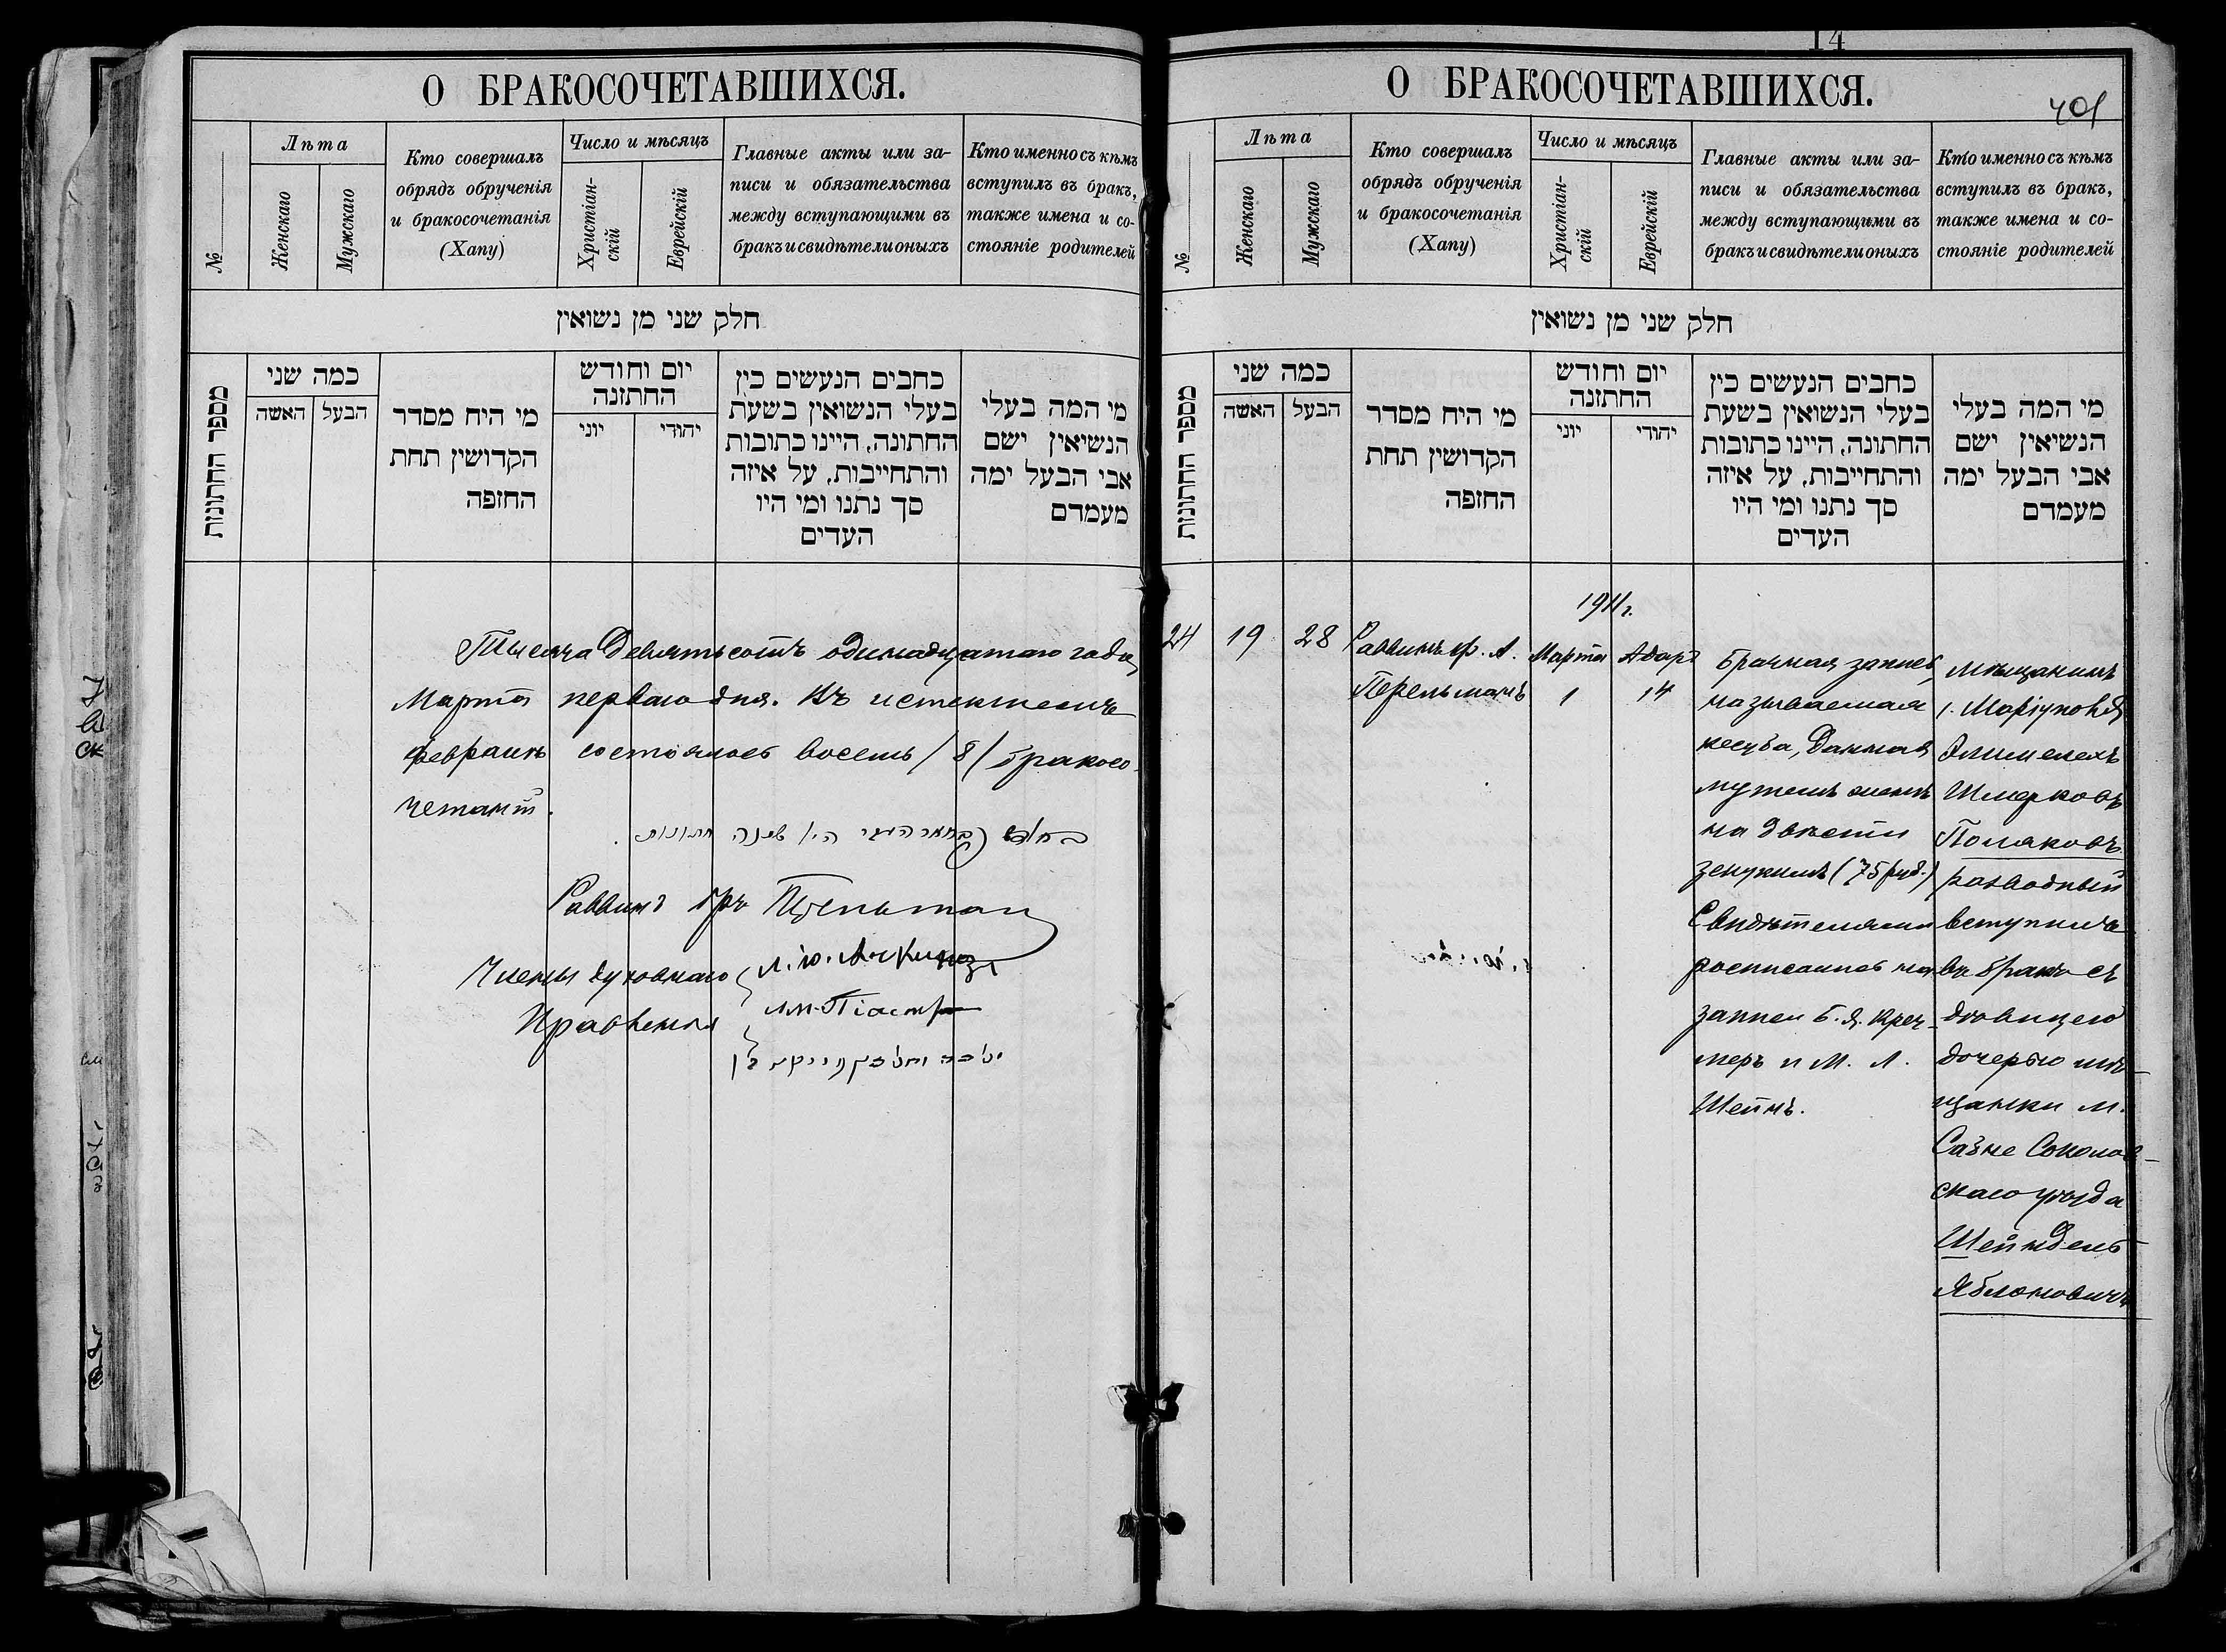 О БРАКОСОЧЕТАВШИХСЯ.
№
Лѣта
Женскаго
Мужскаго
Кто совершалъ
обрядъ обрученія
и бракосочетанія
(Хапу)
Число и мѣсяцъ
Христіан-
скій
Еврейскій
Главные акты или за-
писи и обязательства
между вступающими въ
бракъ и свидѣтели оныхъ
Кто именно съ кѣмъ
вступилъ въ бракъ,
также имена и со-
стояніе родителей
חלק שני מן נשואין
מספר החתונות
כמה שני
האשה
הבעל
מי היח מסדר
הקדושין תחת
החזפה
יום וחודש
החתזנה
יוני
יהודי
כחבים הנעשים כין
בעלי הנשואין בשעת
החתונה, היינו כתובות
והתחייבות, על איזה
סך נתנו ומי היו
העדים
מי המה בעלי
הנשיאין ישם
אבי הבעל ימה
מעמדם
Тысяча девятьсотъ одинадцатаго года,
Марта перваго дня. Въ истекшемъ
февралѣ состоялось восемь /8/ бракосо-
четаній.
Раввинъ Гр. Перельман
Члены духовнаго
Правленія
О БРАКОСОЧЕТАВШИХСЯ.
14
401
№
Лѣта
Женскаго
Мужскаго
Кто совершалъ
обрядъ обрученія
и бракосочетанія
(Хапу)
Число и мѣсяцъ
Христіан-
скій
Еврейскій
Главные акты или за-
писи и обязательства
между вступающими въ
бракъ и свидѣтели оныхъ
Кто именно съ кѣмъ
вступилъ въ бракъ,
также имена и со-
стояніе родителей
חלק שני מן נשואין
מספר החתונות
כמה שני
האשה
הבעל
מי היח מסדר
הקדושין תחת
החזפה
יום וחודש
החתזנה
יוני
יהודי
כחבים הנעשים כין
בעלי הנשואין בשעת
החתונה, היינו כתובות
והתחייבות, על איזה
סך נתנו ומי היו
העדים
מי המה בעלי
הנשיאין ישם
אבי הבעל ימה
מעמדם
1911 г.
24
19
28
Раввинъ Ф. А.
Перельманъ
Марта
1
Адаръ
14
Брачная запись,
называемая
кесуба, данная
мужемъ женѣ
на двѣсти
зекукимъ (75 руб.)
Свидѣтелями
росписались на
записи Б. Я. Креч-
меръ и М. Л.
Шейнъ.
Мѣщанинъ
г. Маріуполя
Элимелехъ
Шмерковъ
Поляковъ
разводный
вступилъ
въ бракъ съ
дѣвицею
дочерью мѣ-
щанки м.
Сазне Соколов-
скаго уѣзда
Шейндель
Яблоновичъ